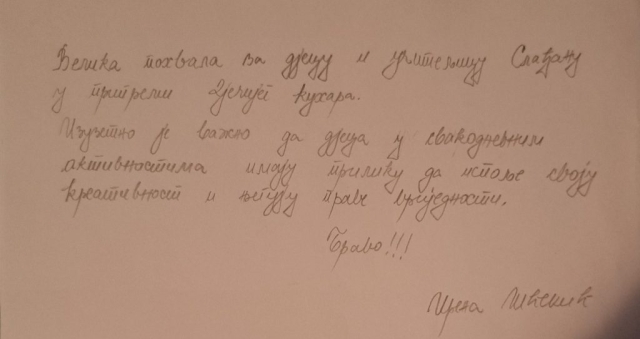 Велика похвала за дјецу и учитељицу Слађану
у припреми Дјечијег кухара.
Изузетно је важно да дјеца у свакодневним
активностима имају прилику да испоље своју
креативност и његују праве вриједности.
Браво!!!
Ирена